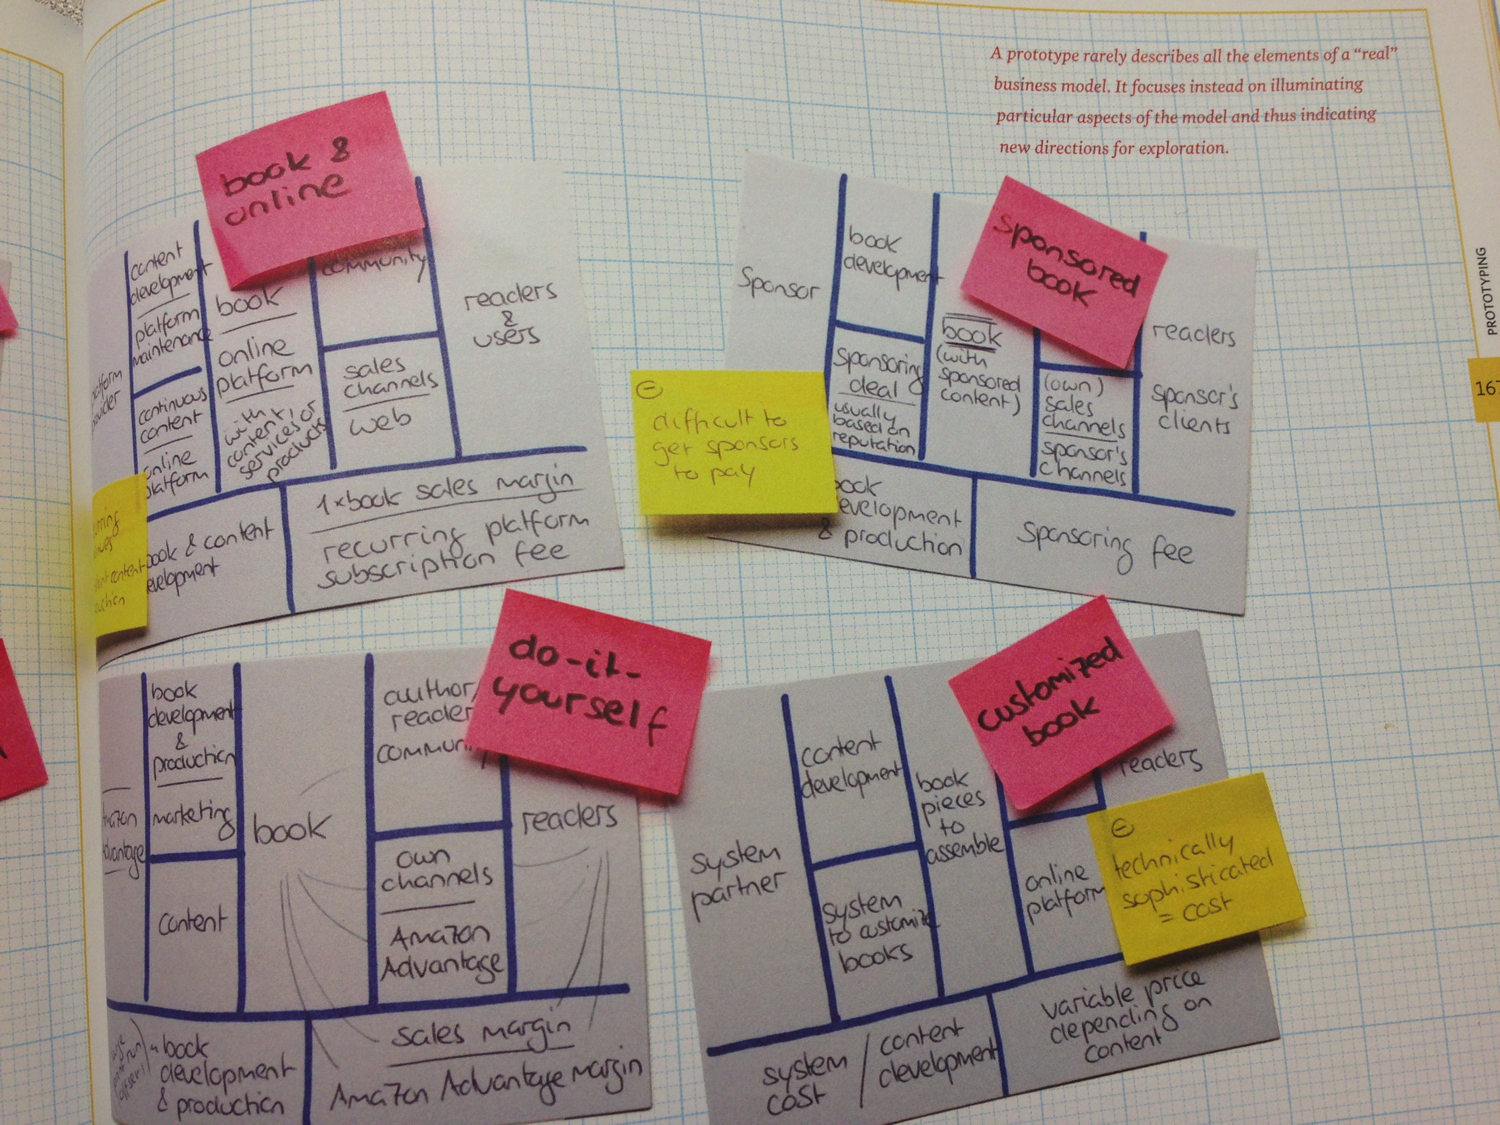 A prototype rarely describes all the elements of a “real”
business model. It focuses instead on illuminating
particular aspects of the model and thus indicating
new directions for exploration.
PROTOTYPING
book &
online
content
development
platform
maintenance
continuous
content
online
platform
book
online
platform
with
content or
services or
products
community
sales
channels
web
readers
&
users
book & content
1xbook sales margin
recurring platform
subscription fee
sponsored
book
Sponsor
book
development
sponsoring
deal
usually
based on
reputation
book
(with
sponsored
content)
(own)
sales
channels
sponsor's
channels
readers
sponsor's
clients
⊖
difficult to
get sponsors
to pay
& production
Sponsoring fee
do-it-
yourself
book
development
&
production
marketing
content
book
author/
reader
own
channels
Amazon
Advantage
readers
book
development
& production
sales margin
Amazon Advantage margin
customized
book
system
partner
content
development
system
to customize
books
book
pieces
to
assemble
online
platform
readers
⊖
technically
sophisticated
= cost
system
cost
/
content
development
variable price
depending on
content